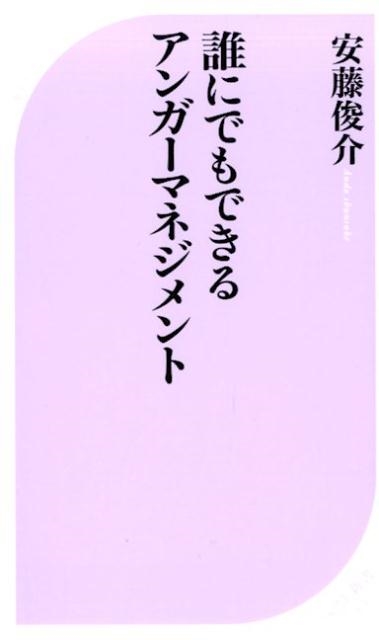 安藤俊介
Ando Shunsuke
誰にでもできる
アンガーマネジメント